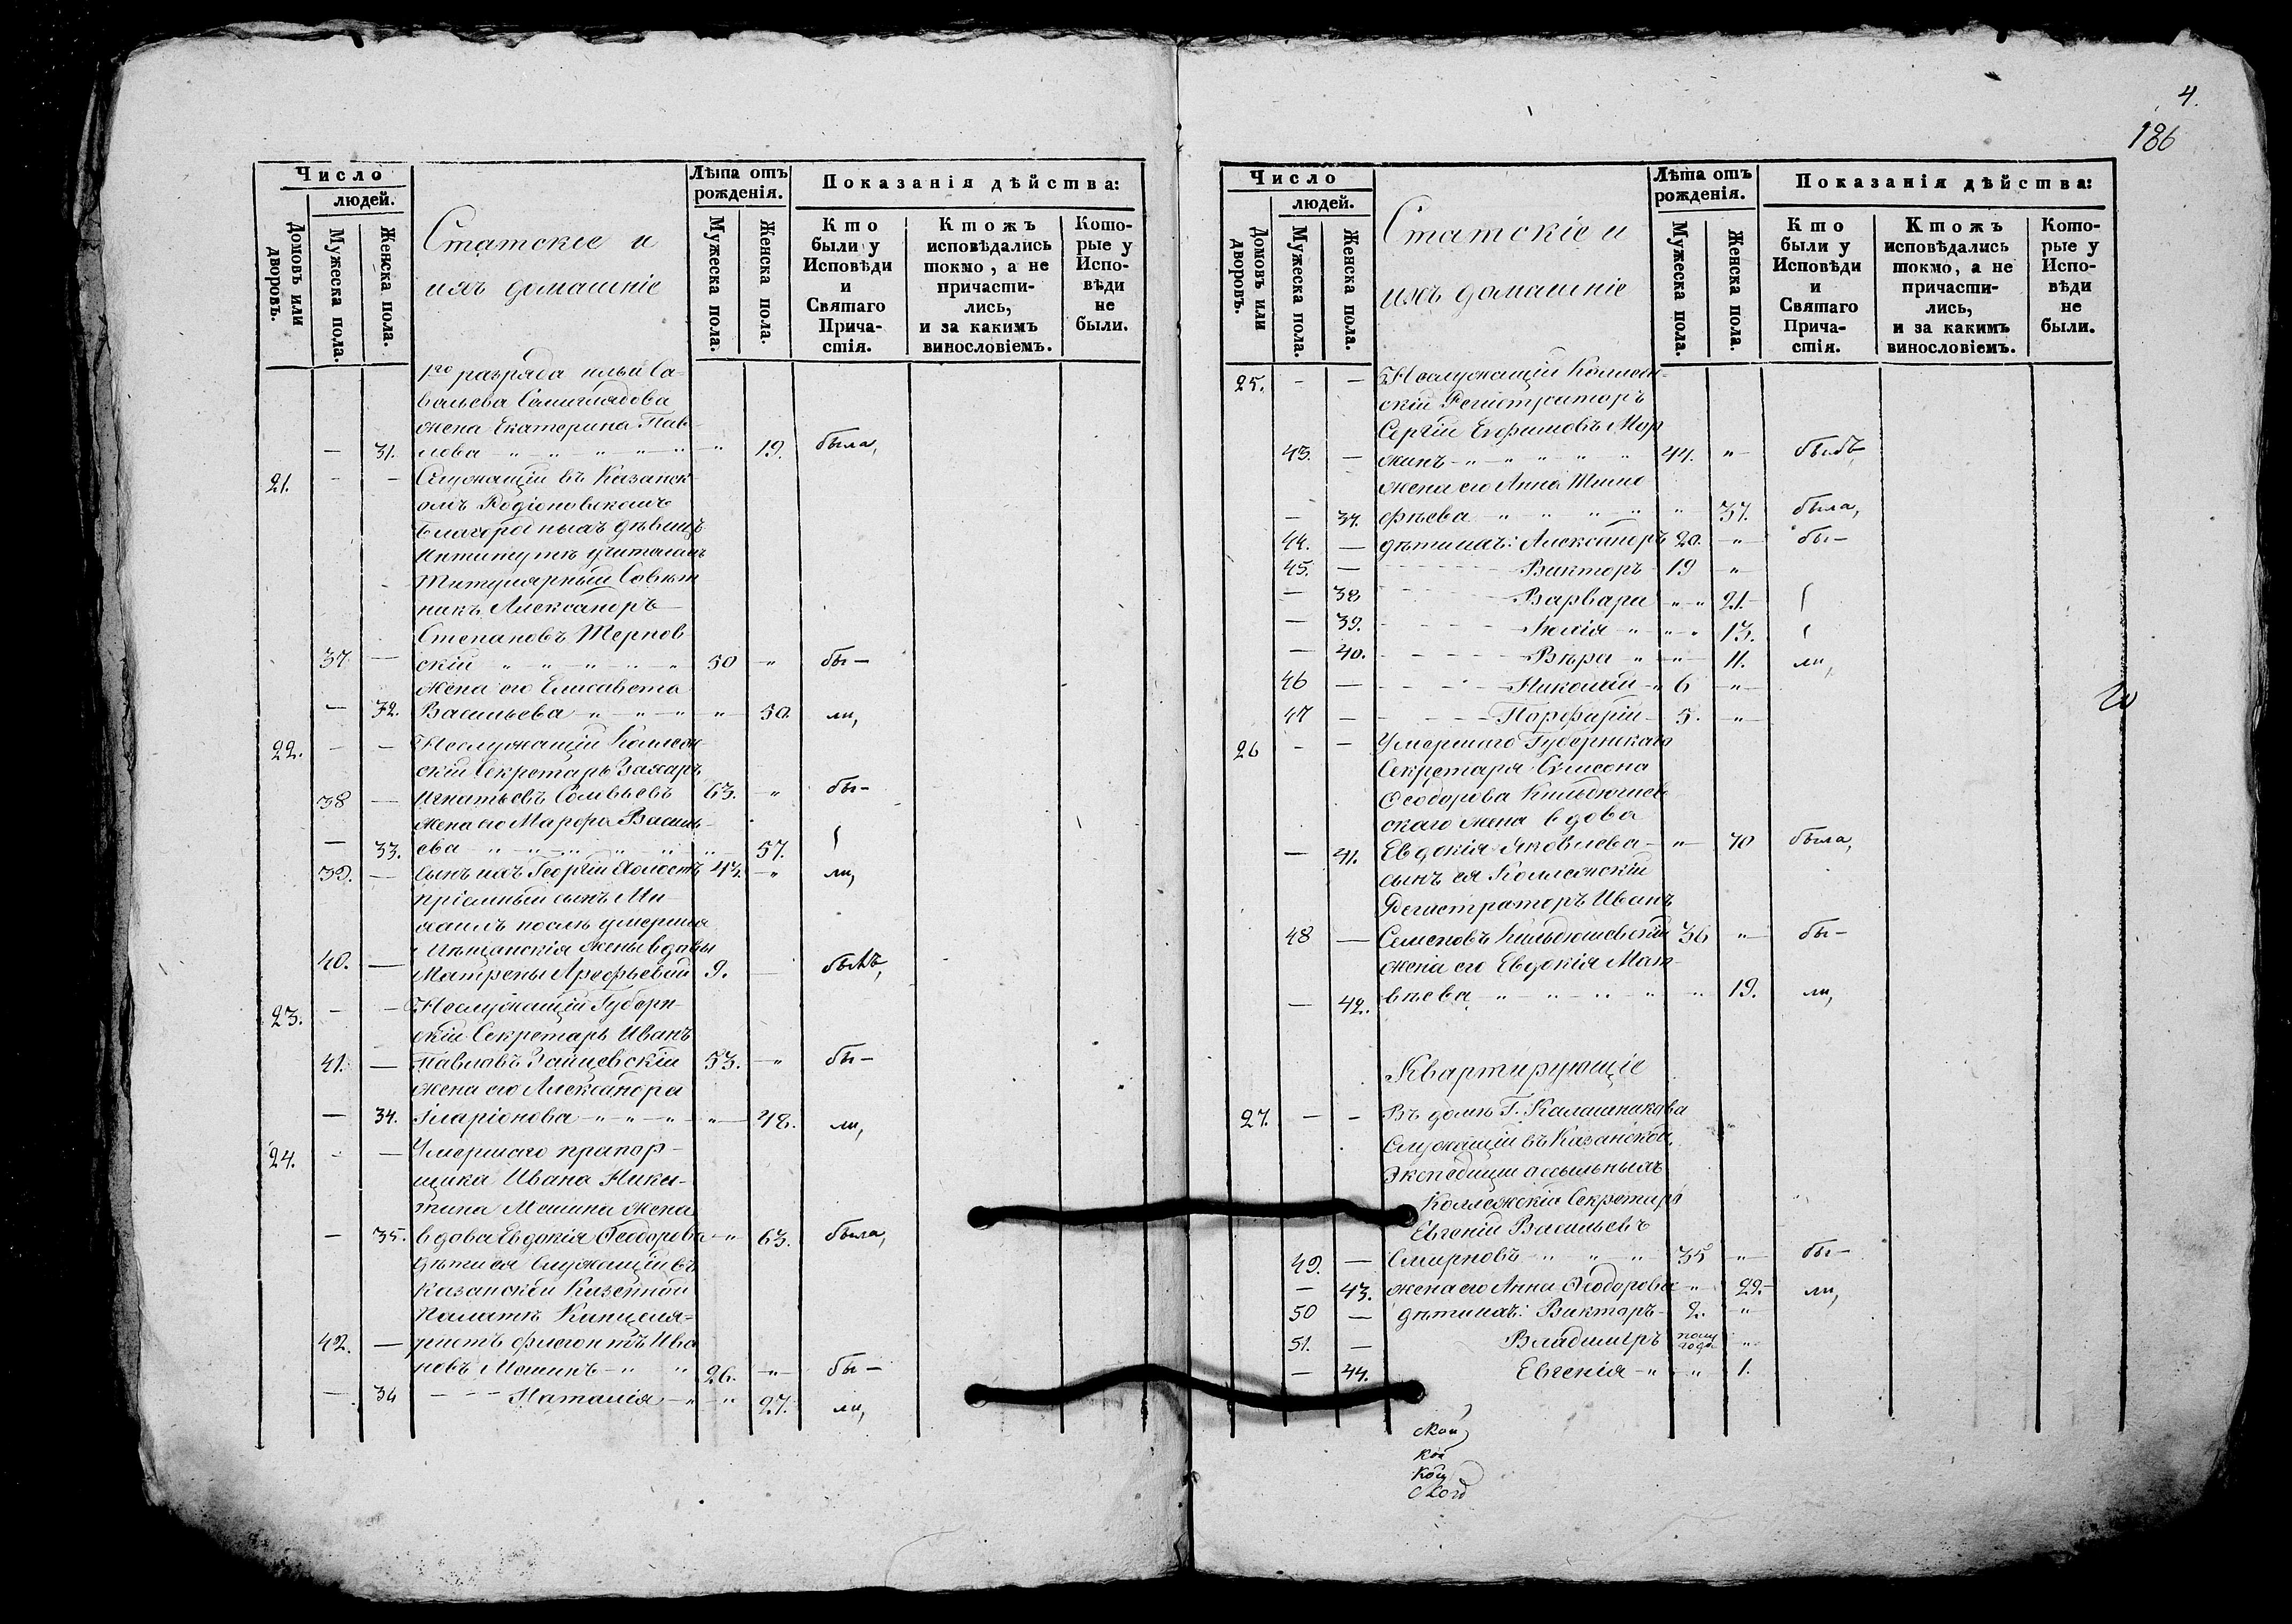 Число
людей.
Домовъ или дворовъ.
Мужеска пола.
Женска пола.
Статскіе и
ихъ домашніе
Лѣта отъ
рожденія.
Мужеска пола.
Женска пола.
Показанія дѣйства:
Кто
были у
Исповѣди
и
Святаго
Прича-
стія.
Ктожъ
исповѣдались
токмо, а не
причасти-
лись,
и за какимъ
винословіемъ.
Кото-
рые у
Испо-
вѣди
не
были.
1го разряда
жена Екатерина Пав-
— 31. лова 19. была,
21. — — Служащій въ Казанск
омъ Родіоновскомъ
Благородныхъ дѣвицъ
Титулярный Совѣт
никъ Александръ
Степановъ Тернов
37 — скій 50 бы—
жена его Елисавета
— 32. Васильева 50. ли,
22. — — Неслужащій Коллеж
скій Секретарь Захаръ
38 — Игнатьевъ Соловьевъ 63. бы—
жена его Марфа Василь-
— 33. ева 57.
39. — сынъ ихъ Георгій холостъ 43. ли,
пріемный сынъ Ми-
хаилъ послѣ умершія
Мѣщанскія жены вдовы
40. — Матрены Арефьевой 9. былъ,
23. — — Неслужащій Губерн-
скій Секретарь Иванъ
41. — Павловъ Зайцевскій 53. бы—
жена его Александра
— 34. Иларіонова 48. ли,
24. — — Умершаго прапор-
щика Ивана Ники-
тина Мошина жена
— 35. вдова Евдокія Ѳеодорова 63. была,
дѣти ея Служащій въ
Казанской Казенной
Палатѣ Канцеля-
42. — ристъ Флегонтъ Ива
новъ Мошинъ 26. бы—
— 36 Наталія 27. ли,
4.
186
Число
людей.
Домовъ или дворовъ.
Мужеска пола.
Женска пола.
Статскіе и
ихъ домашніе
Лѣта отъ
рожденія.
Мужеска пола.
Женска пола.
Показанія дѣйства:
Кто
были у
Исповѣди
и
Святаго
Прича-
стія.
Ктожъ
исповѣдались
токмо, а не
причасти-
лись,
и за какимъ
винословіемъ.
Кото-
рые у
Испо-
вѣди
не
были.
25. — — Неслужащій Коллеж-
скій Регистраторъ
Сергій Ефимовъ Мор
43. — жинъ 44. былъ,
жена его Анна Тимо
— 37. фѣева 37. была,
44. — дѣти ихъ: Александръ 20. бы—
45. — Викторъ 19
— 38 Варвара 21.
— 39. Юлія 13.
— 40. Вѣра 11. ли,
46 — Николай 6
47 — Порфирій 5.
26 — — Умершаго Губернскаго
Секретаря Симеона
Ѳеодорова Кильдюшев
скаго жена вдова
— 41. Евдокія Яковлева 70 была,
сынъ ея Коллежскій
Регистраторъ Иванъ
48 — Семеновъ Кильдюшевскій 36 бы—
жена его Евдокія Мат-
— 42. вѣева 19. ли,
Квартирующіе
27. — — Въ домѣ Г. Калашникова
Служащій въ Казанской
Экспедиціи о ссыльныхъ
Коллежскій Секретарь
Евгеній Васильевъ
49. — Смирновъ 35 бы—
— 43. жена его Анна Ѳеодорова 22. ли,
50 — дѣти ихъ: Викторъ 2.
51. — Владиміръ полу года
— 44. Евгенія 1.